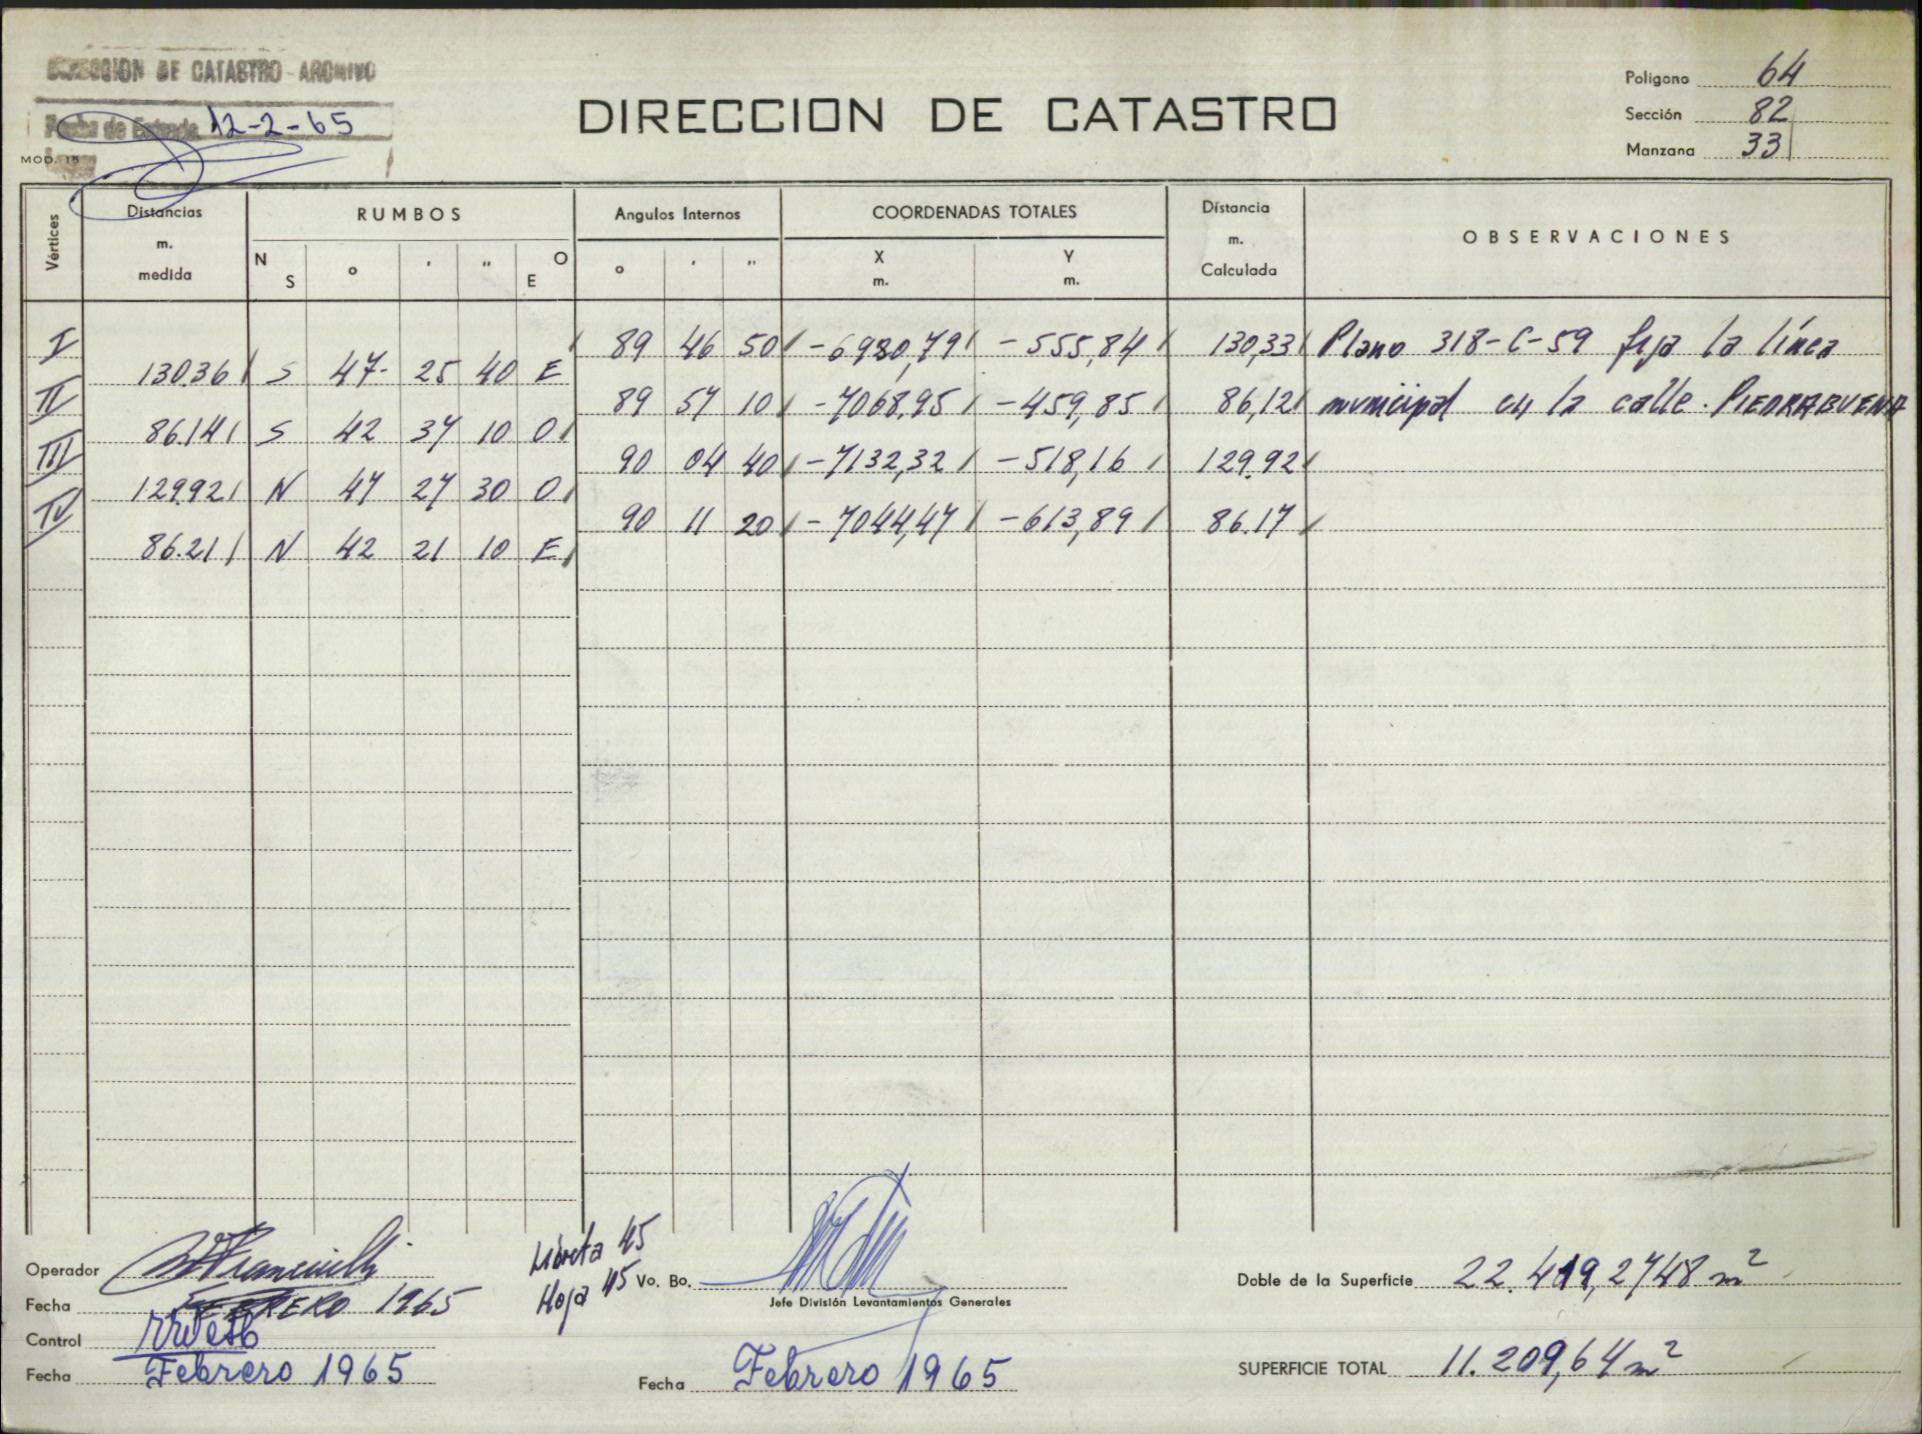 DIRECCION DE CATASTRO - ARCHIVO
Fecha de Entrada 12-2-65
MOD. 15
DIRECCION DE CATASTRO
Poligono 64
Sección 82
Manzana 33
Vértices
Distancias m. medida
RUMBOS
N S ° ' " O E
Angulos Internos
° ' "
COORDENADAS TOTALES
X m. Y m.
Distancia m. Calculada
OBSERVACIONES
I 89 46 50 -6980,79 -555,84 130,33 Plano 318-C-59 fija la línea
130.36 S 47 25 40 E
II 89 57 10 -7068,95 -459,85 86,12 municipal en la calle. PIEDRABUENA
86.14 S 42 37 10 O
III 90 04 40 -7132,32 -518,16 129.92
129.92 N 47 27 30 O
IV 90 11 20 -7044,47 -613,89 86.17
86.21 N 42 21 10 E
Operador
Fecha FEBRERO 1965
Control
Fecha Febrero 1965
Libreta 45
Hoja 45
Vo. Bo.
Jefe División Levantamientos Generales
Fecha Febrero 1965
Doble de la Superficie 22.419,2748 m²
SUPERFICIE TOTAL 11.209,64 m²